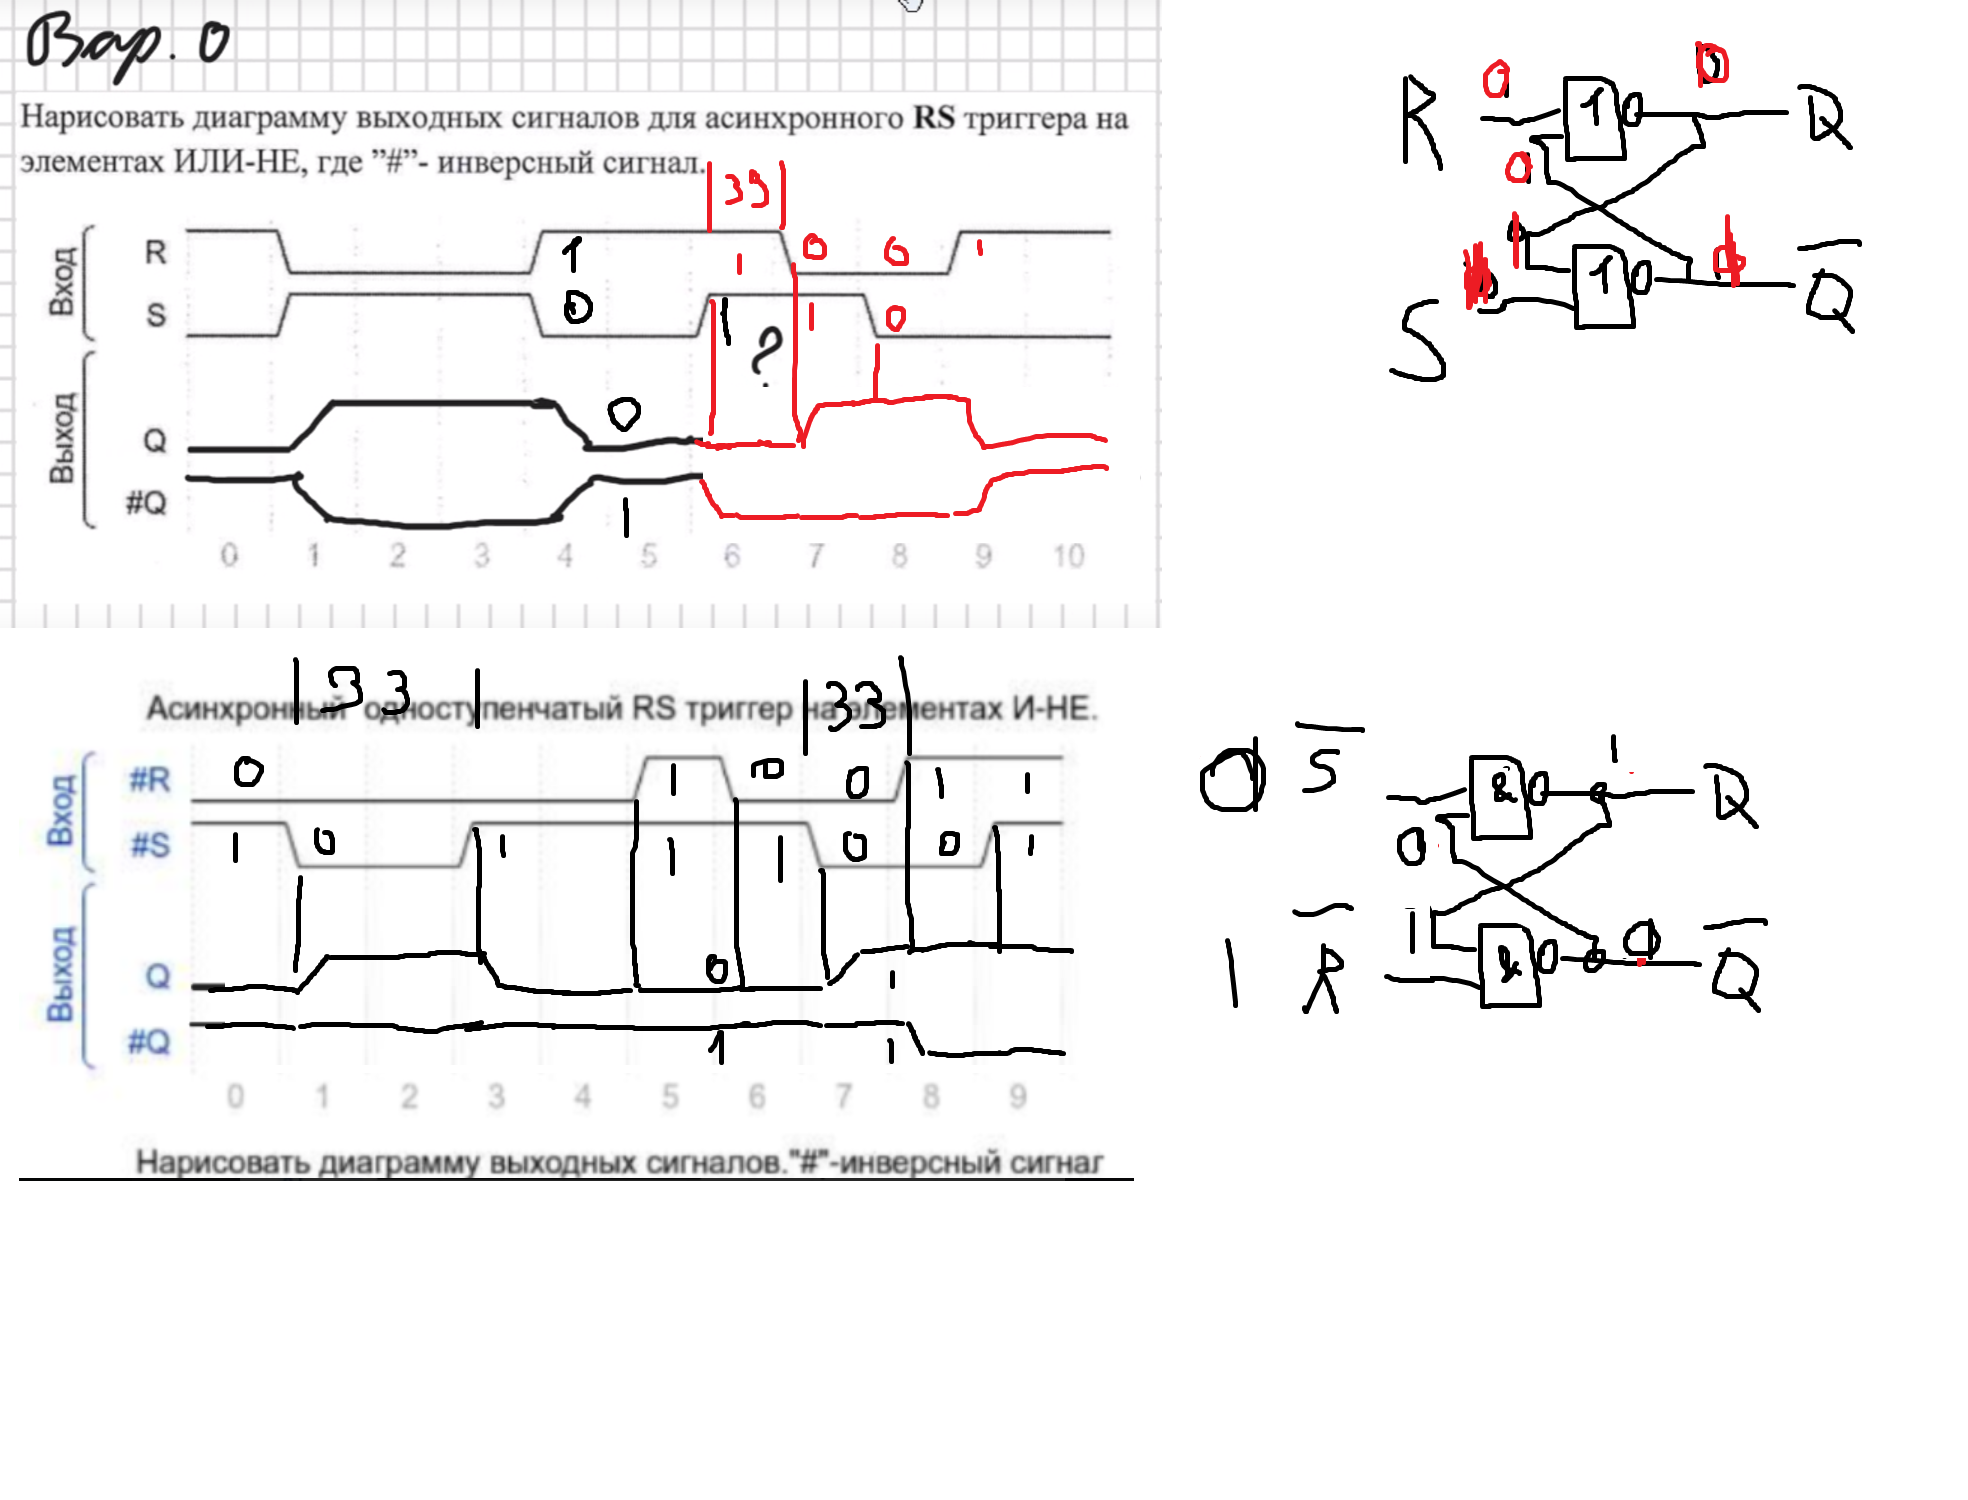 Вар. 0
Нарисовать диаграмму выходных сигналов для асинхронного RS триггера на
элементах ИЛИ-НЕ, где ”#”- инверсный сигнал.
33
Вход
R 1 1 0 0 1
S 0 1 1 0
?
Выход
Q 0
#Q 1
0 1 2 3 4 5 6 7 8 9 10
R 0 1 0 Q
0
1
S 1 Q
33 33
Асинхронный одноступенчатый RS триггер на элементах И-НЕ.
Вход
#R 0 1 0 0 1 1
#S 1 0 1 1 1 0 0 1
Выход
Q 0 1
#Q 1 1
0 1 2 3 4 5 6 7 8 9
Нарисовать диаграмму выходных сигналов."#"-инверсный сигнаг
0 S & 1 Q
0
1
1 R & 0 Q